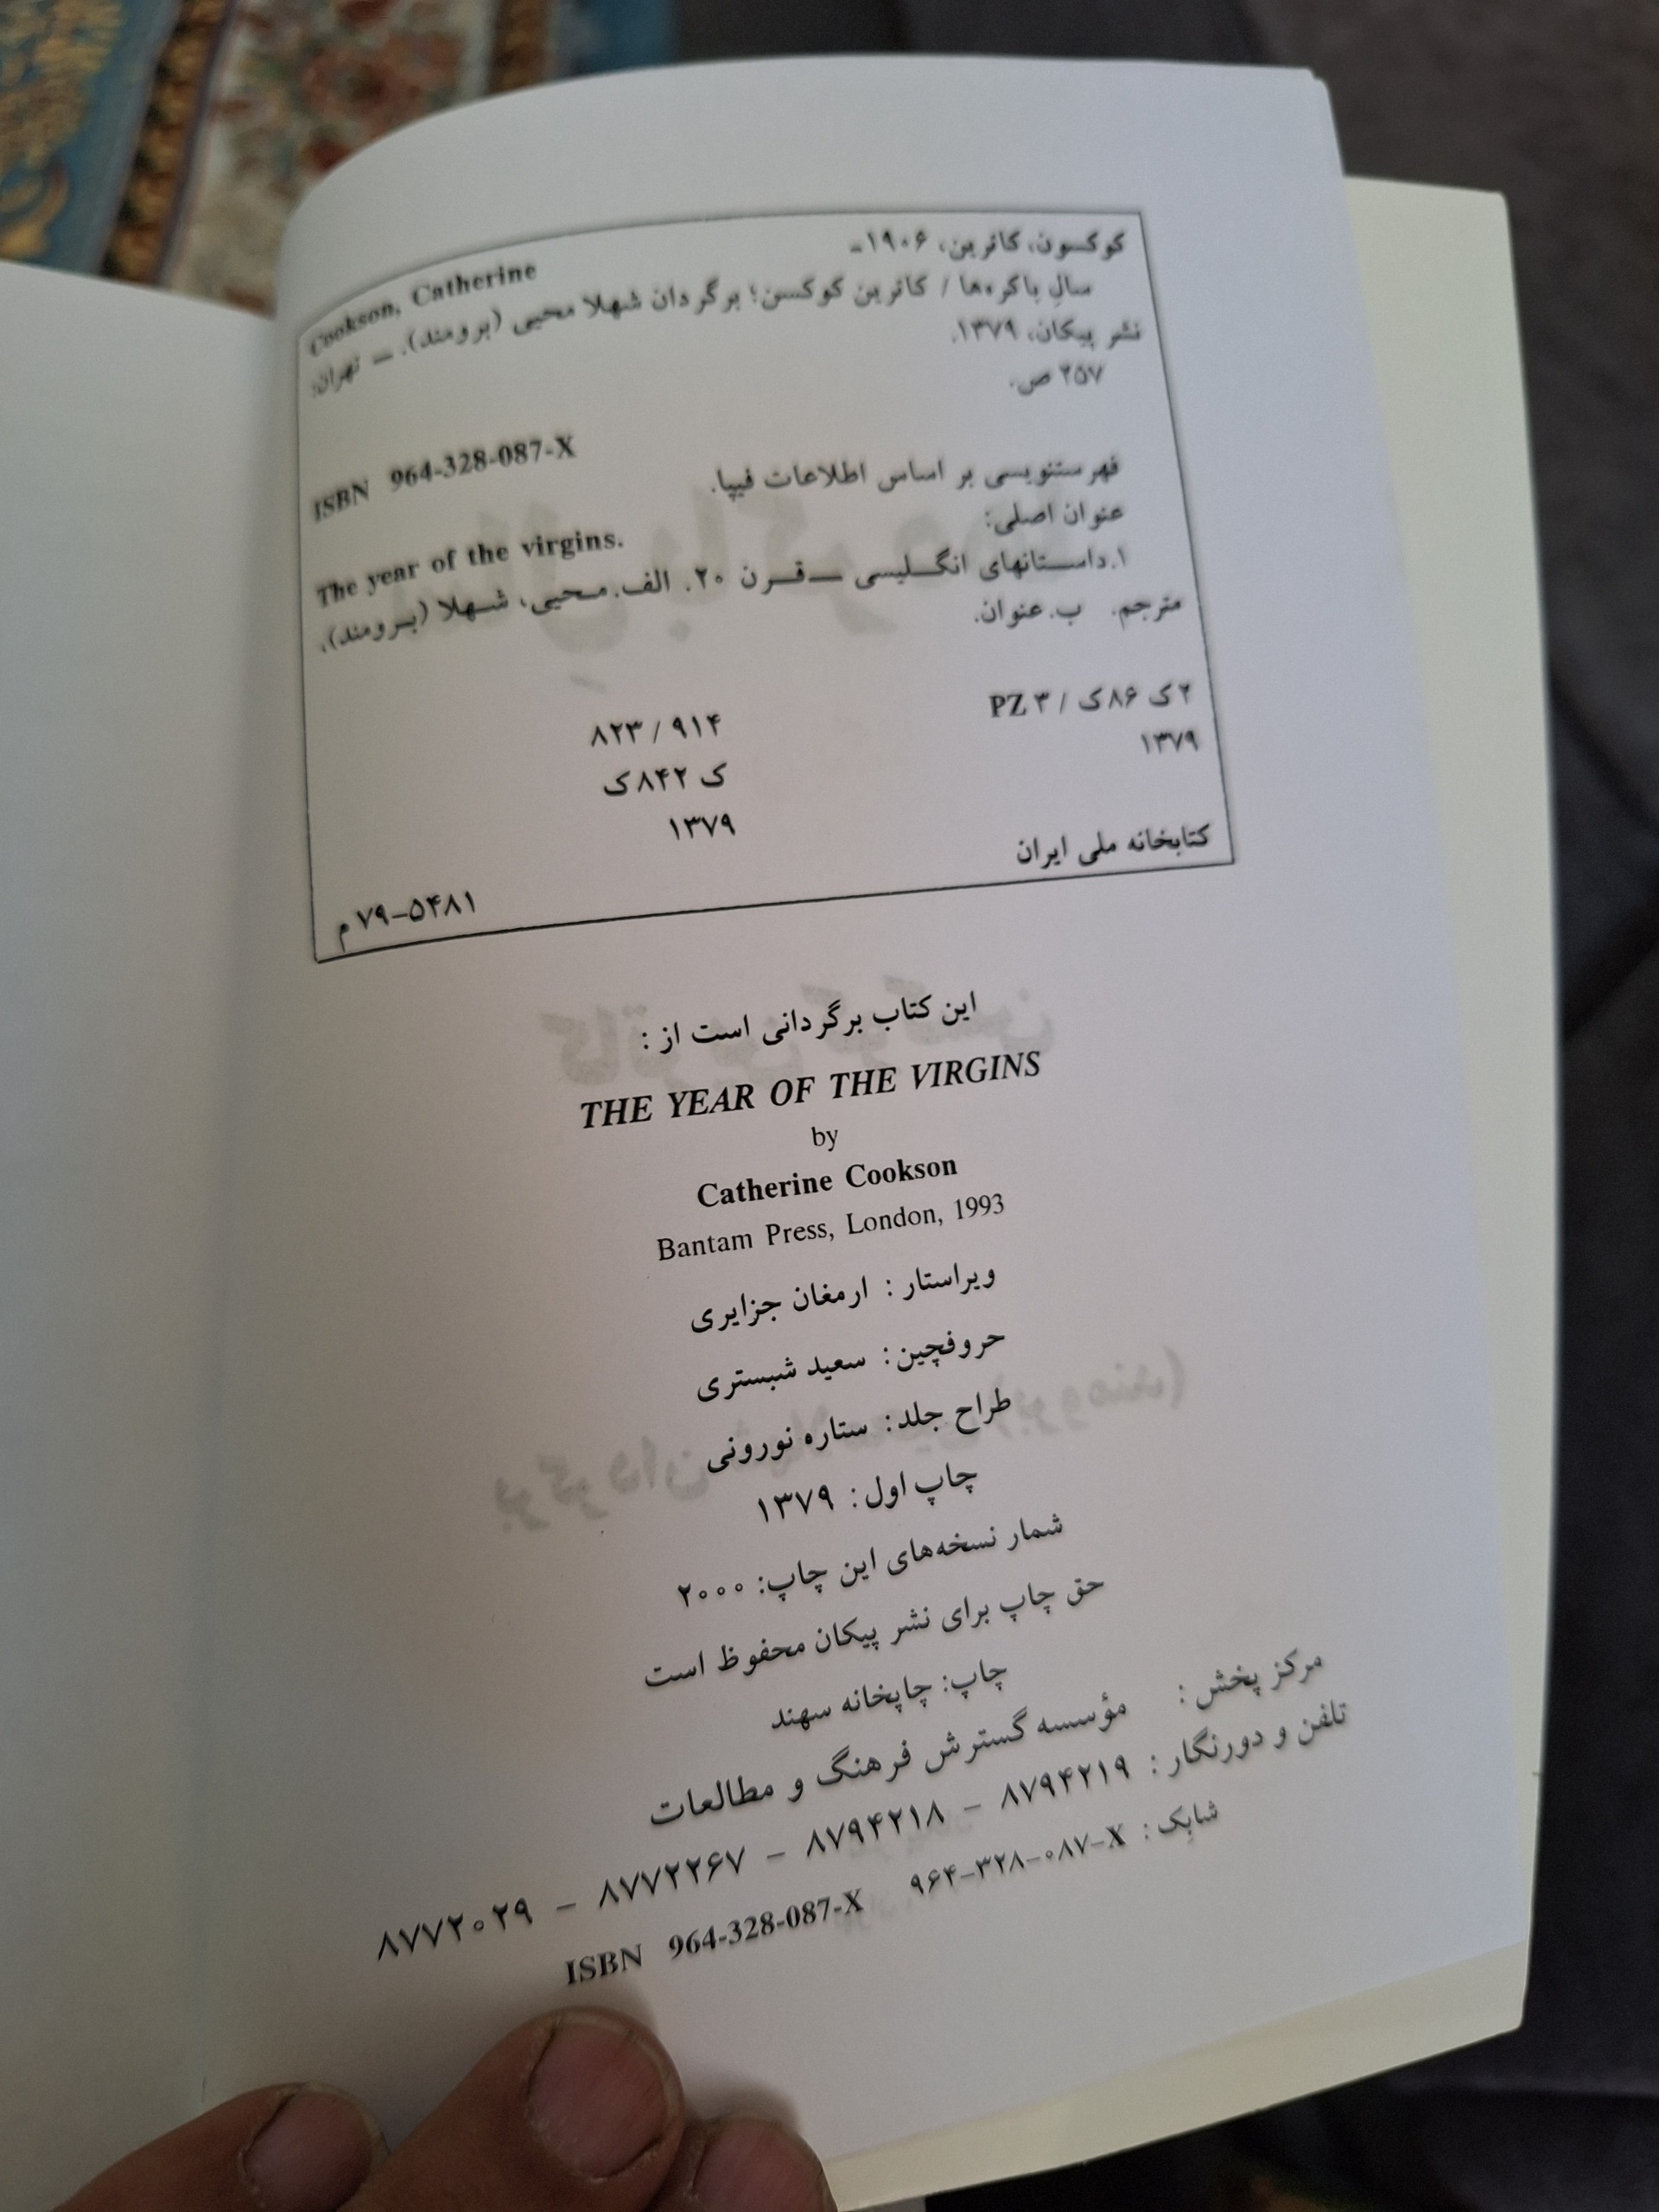 کوکسون، کاترین، ۱۹۰۶-
Cookson, Catherine
سالِ باکره‌ها / کاترین کوکسن؛ برگردان شهلا محیی (برومند). — تهران:
نشر پیکان، ۱۳۷۹.
۲۵۷ ص.
ISBN 964-328-087-X
فهرستنویسی بر اساس اطلاعات فیپا.
عنوان اصلی:
The year of the virgins.
۱.داستانهای انگلیسی — قرن ۲۰. الف.محیی، شهلا (برومند)،
مترجم. ب.عنوان.
۲ ک ۸۶ ک / ۳ PZ
۸۲۳ / ۹۱۴
۱۳۷۹
ک ۸۴۲ ک
۱۳۷۹
کتابخانه ملی ایران
۷۹-۵۴۸۱ م
این کتاب برگردانی است از :
THE YEAR OF THE VIRGINS
by
Catherine Cookson
Bantam Press, London, 1993
ویراستار : ارمغان جزایری
حروفچین: سعید شبستری
طراح جلد: ستاره نورونی
چاپ اول: ۱۳۷۹
شمار نسخه‌های این چاپ: ۲۰۰۰
حق چاپ برای نشر پیکان محفوظ است
چاپ: چاپخانه سهند
مرکز پخش : مؤسسه گسترش فرهنگ و مطالعات
تلفن و دورنگار : ۸۷۹۴۲۱۹ - ۸۷۹۴۲۱۸ - ۸۷۷۲۲۶۷ - ۸۷۷۲۰۲۹
شابِک : X-۹۶۴-۳۲۸-۰۸۷
ISBN 964-328-087-X